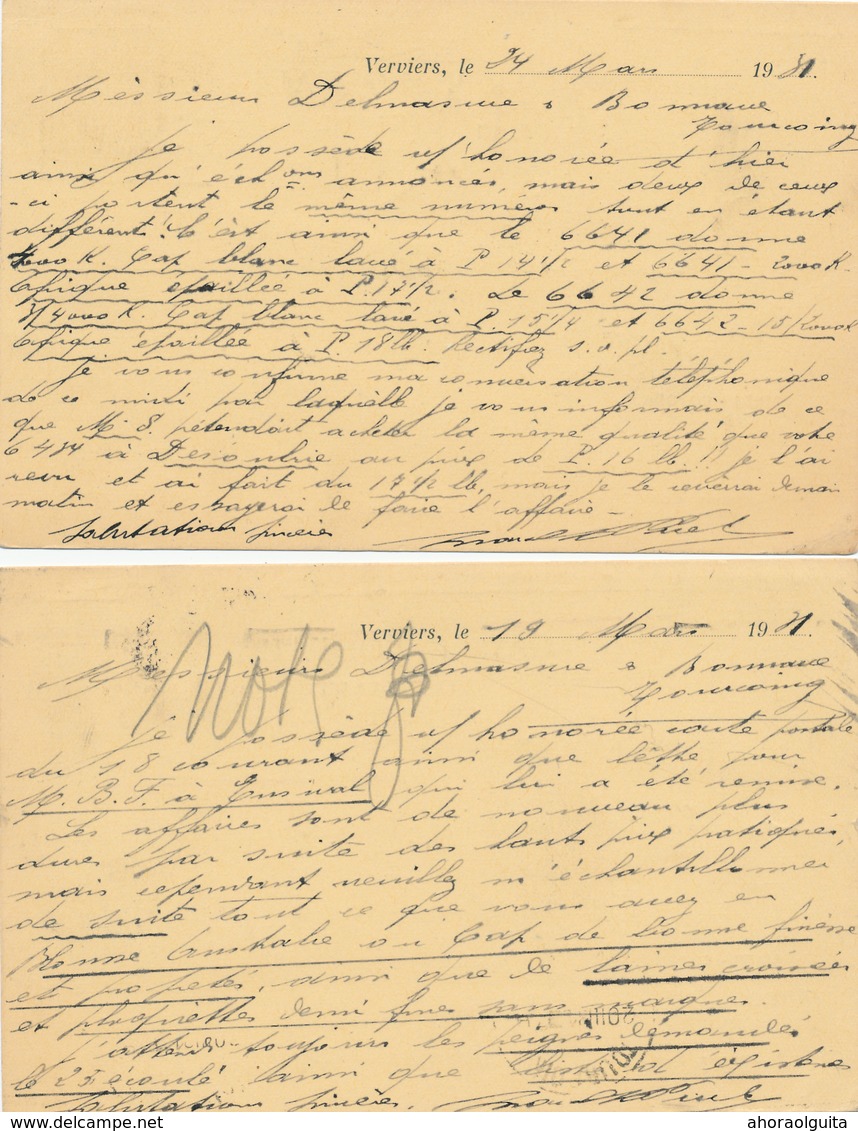 Verviers, le 24 Mars 1931.
Méssieurs Delmasure & Bonnave
Tourcoing
Je possède v/ honorée d'hier
ainsi qu'échons annoncés, mais deux de ceux
-ci portent le même numéros tout en étant
différent! C'est ainsi que le 6641 donne
K. Cap blanc lavé à P 14 1/2 et 6641 - 2000 K.
épaillée à P. 17 1/2. Le 6642 donne
3/4000 K. Cap blanc lavé à P. 15 1/4 et 6642 - 15/2000 K
épaillée à P. 18 lb. Rectifiez s.v.pl.
Je vous confirme ma conversation téléphonique
de ce midi par laquelle je vous informais de ce
que M. S. pétendait acheter la même qualité que votre
6484 à au prix de P. 16 lb!! je l'ai
revu et ai fait du 17 1/2 lb, mais je le reverrai demain
matin et essayerai de faire l'affaire -
Salutations sincères
Verviers, le 19 Mars 1931.
Note
Messieurs Delmasure & Bonnave
Tourcoing
Je possède v/ honorée carte postale
du 18 courant ainsi que lettre pour
M. B. F. à Ensival qui lui a été remise.
Les affaires sont de nouveau plus
dures par suite des hauts prix pratiqués,
mais cependant veuillez m'échantillonner
de suite tout ce que vous avez en
Blousse Australie ou Cap de bonne finesse
et propetés, ainsi que de laines croisées
et plaquettes demi fines sans marques.
J'attends toujours les peignés demandés
le 25 écoulé ainsi que d'éxistences
Salutations sincères.
ahoraolguita